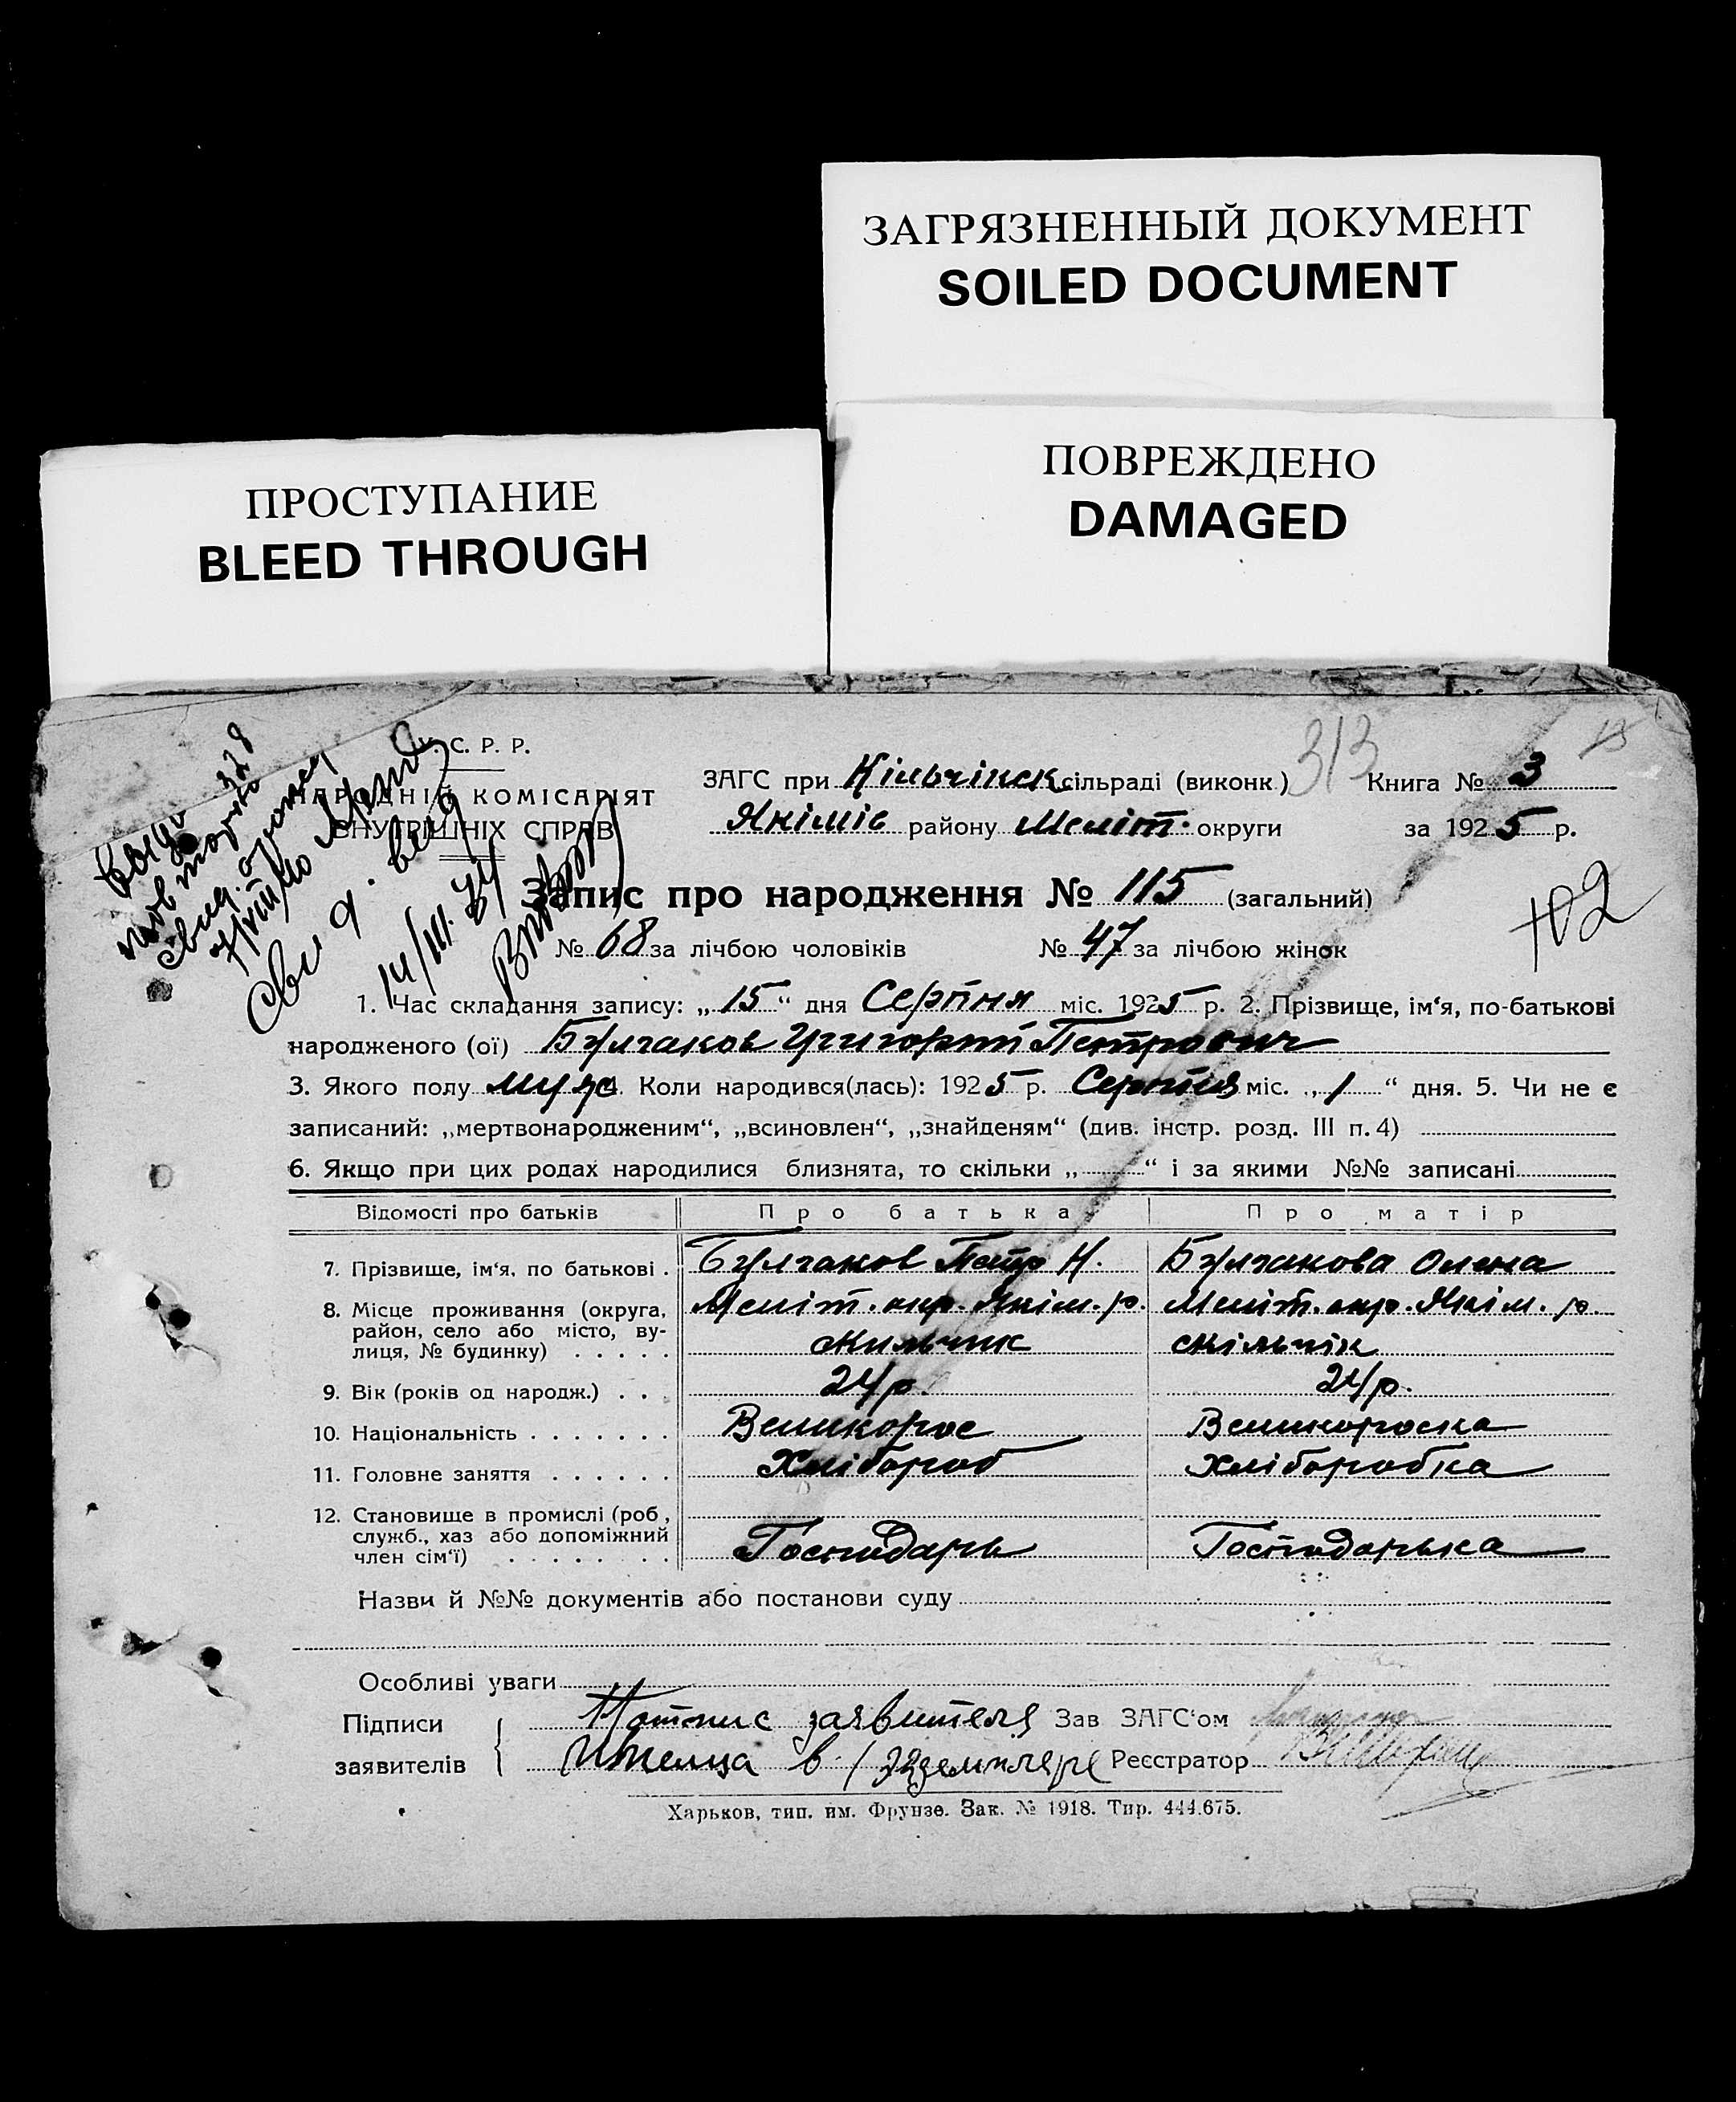 ЗАГРЯЗНЕННЫЙ ДОКУМЕНТ
SOILED DOCUMENT
ПРОСТУПАНИЕ
BLEED THROUGH
ПОВРЕЖДЕНО
DAMAGED
У. С. Р. Р.
НАРОДНІЙ КОМІСАРІЯТ
ВНУТРІШНІХ СПРАВ
313
ЗАГС при Кільчінск сільраді (виконк.) Книга № 3
Якімів району Меліт. округи за 1925 р.
Запис про народження № 115 (загальний)
102
№ 68 за лічбою чоловіків № 47 за лічбою жінок
14/III
1. Час складання запису: „15“ дня Серпня міс. 1925 р. 2. Прізвище, ім‘я, по-батькові
народженого (ої) Булгаков Григорий Петрович
3. Якого полу муж 4. Коли народився(лась): 1925 р. Серпня міс. „1“ дня. 5. Чи не є
записаний: „мертвонародженим“, „всиновлен“, „знайденям“ (див. інстр. розд. III п. 4)
6. Якщо при цих родах народилися близнята, то скільки „ “ і за якими №№ записані
Відомості про батьків Про батька Про матір
7. Прізвище, ім‘я, по батькові . Булгаков Петр Н. Булгакова Олена
8. Місце проживання (округа, Меліт. окр. Якім. р. Меліт. окр. Якім. р.
район, село або місто, ву-
лиця, № будинку) . . . . . скильчик скільчік
9. Вік (років од народж.) . . . 24/р. 24/р.
10. Національність . . . . . . . Великорос Великороска
11. Головне заняття . . . . . . Хлібороб Хліборобка
12. Становище в промислі (роб.,
служб., хаз або допоміжний
член сім‘ї) . . . . . . . . Господарь Господарька
Назви й №№ документів або постанови суду
Особливі уваги
Підписи Потпис заявителя Зав ЗАГС‘ом
заявителів имеица в 1 экземпляре Реєстратор
Харьков, тип. им. Фрунзе. Зак. № 1918. Тир. 444.675.